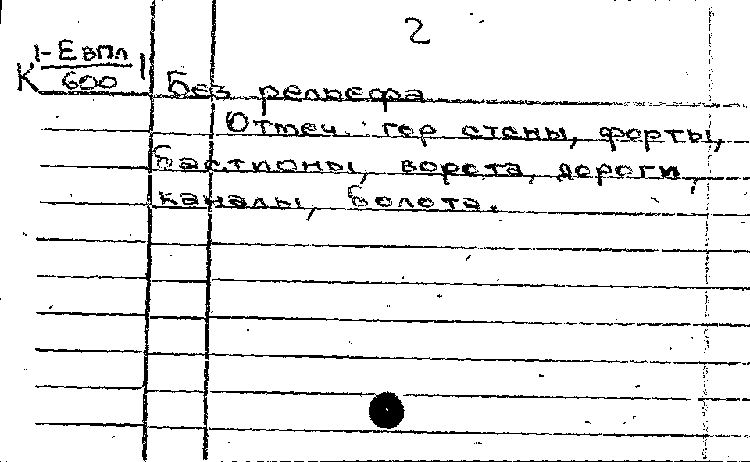 2
К 1-Евпл
600
Без рельефа
Отмеч. гор стены, форты,
бастионы, ворота, дороги,
каналы, болота.